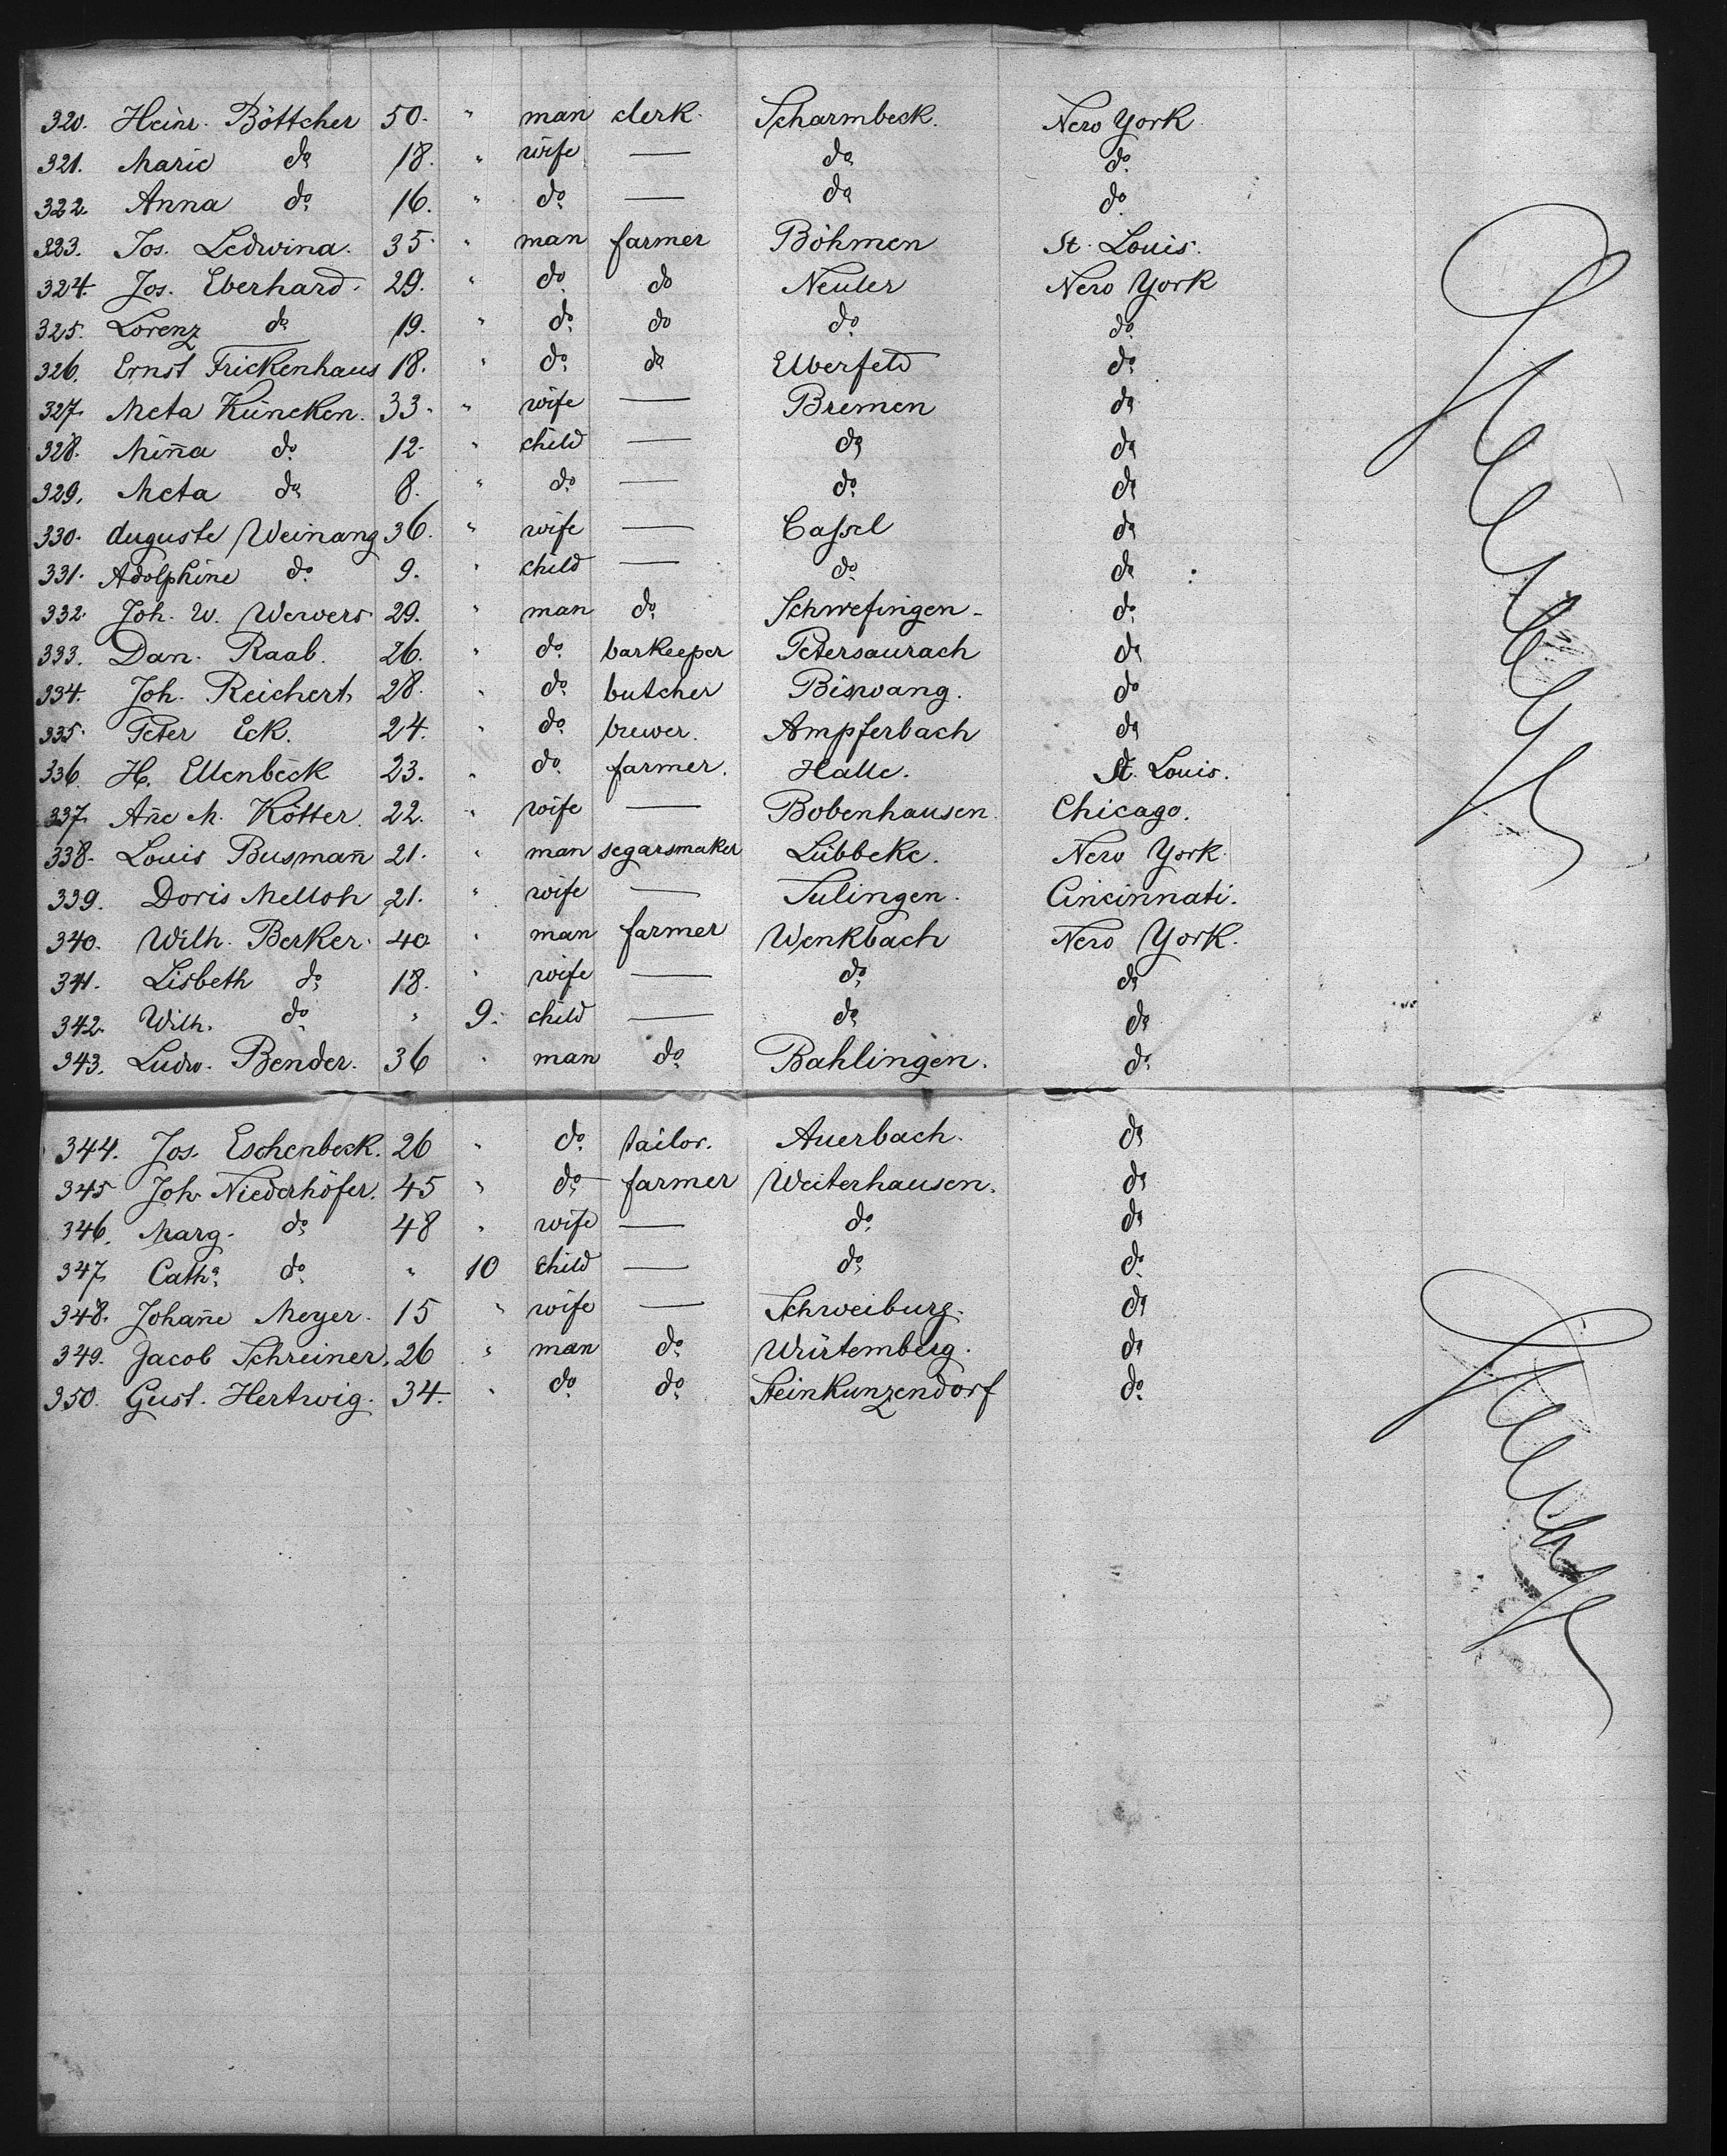 320. Heinr. Böttcher 50. " man clerk. Scharmbeck. New York
321. Marie do 18. " wife — do do
322. Anna do 16. " do — do do
323. Jos. Ledwina. 35. " man farmer Böhmen St. Louis.
324. Jos. Eberhard. 29. " do do Neuler New York
325. Lorenz do 19. " do do do do
326. Ernst Frickenhaus 18. " do do Elberfeld do
327. Meta Küncken. 33. " wife — Bremen do
328. Miña do 12. " child — do do
329. Meta do 8. " do — do do
330. Auguste Weinang 36. " wife — Cassel do
331. Adolphine do 9. " child — do do
332. Joh. W. Wewers 29. " man do Schwefingen do
333. Dan. Raab. 26. " do barkeeper Petersaurach do
334. Joh. Reichert 28. " do butcher Biswang. do
335. Peter Eck. 24. " do brewer. Ampferbach do
336. H. Ellenbeck 23. " do farmer. Halle. St. Louis.
337. Añe M. Kötter. 22. " wife — Bobenhausen. Chicago.
338. Louis Busmañ 21. " man segarsmaker Lübbeke. New York.
339. Doris Melloh 21. " wife — Sulingen. Cincinnati.
340. Wilh. Berker. 40. " man farmer Wenkbach New York.
341. Lisbeth do 18. " wife — do do
342. Wilh. do " 9. child — do do
343. Ludw. Bender. 36 " man do Bahlingen. do
344. Jos. Eschenbeck. 26 " do tailor. Auerbach. do
345 Joh. Niederhöfer. 45 " do farmer Weiterhausen. do
346. Marg. do 48 " wife — do do
347. Catha. do " 10 child — do do
348. Johañe Meyer. 15 " wife — Schweiburg. do
349. Jacob Schreiner. 26 " man do Würtemberg. do
350. Gust. Hertwig. 34. " do do Steinkunzendorf do